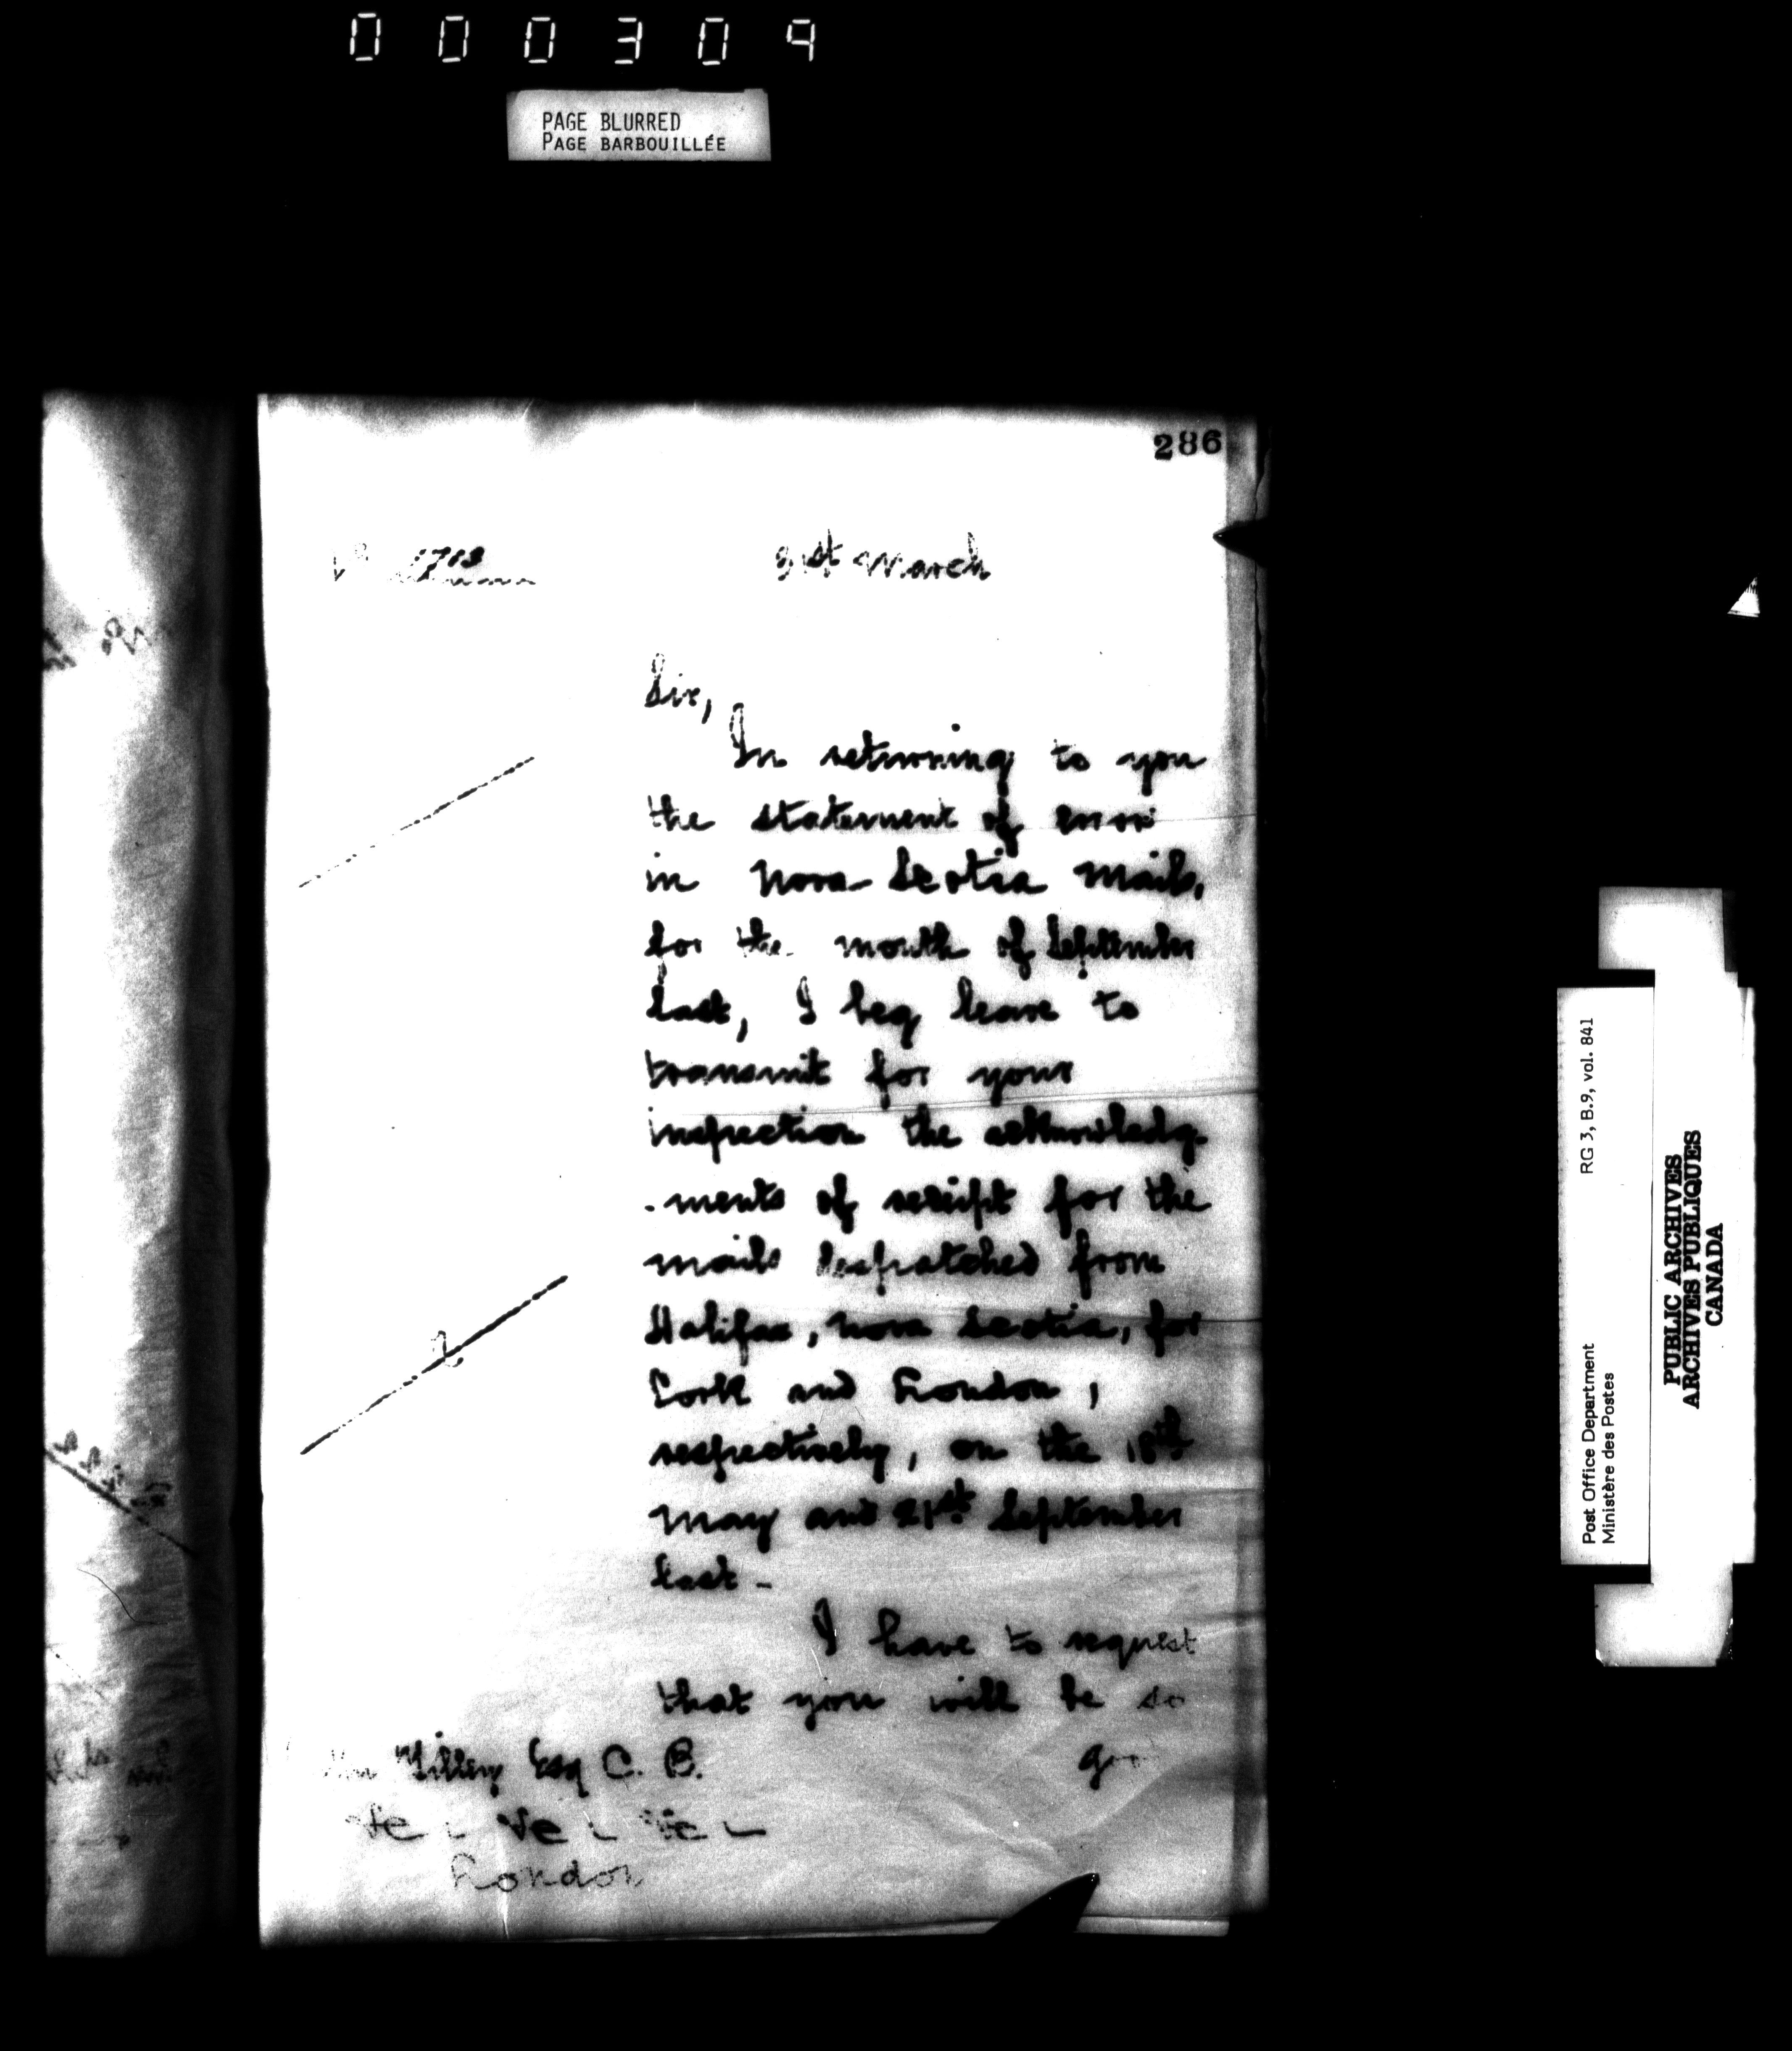 000309
PAGE BLURRED
PAGE BARBOUILLÉE
286
No 1713
31st March
Sir,
In returning to you
the statement of error
in Nova Scotia Mails,
for the month of September
last, I beg leave to
transmit for your
inspection the acknowledg-
-ments of receipt for the
mails despatched from
Halifax, Nova Scotia, for
Cork and London,
respectively, on the 18th
May and 21st September
last -
I have to request
that you will be so
goo
Tilley Esq C. B.
&c &c &c
London
RG 3, B.9, vol. 841
Post Office Department
Ministère des Postes
PUBLIC ARCHIVES
ARCHIVES PUBLIQUES
CANADA